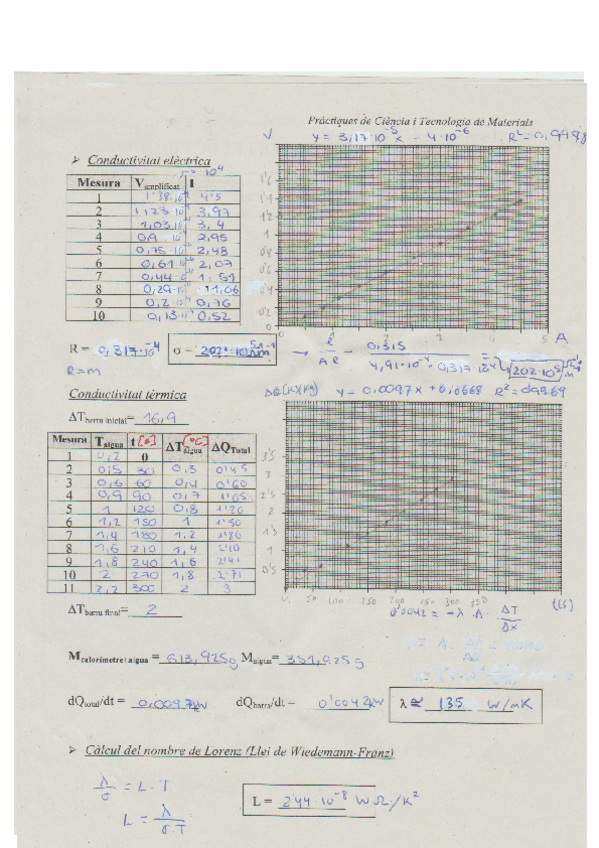 Pràctiques de Ciència i Tecnologia de Materials
V y = 3,17·10⁻⁵x - 4·10⁻⁶ R² = 0,9998
➢ Conductivitat elèctrica
Mesura V amplificat I
1 1'38·10⁻⁴ 4'5
2 1,23·10⁻⁴ 3,97
3 1,03·10⁻⁴ 3,4
4 0,9·10⁻⁴ 2,95
5 0,75·10⁻⁴ 2,48
6 0,61·10⁻⁴ 2,07
7 0,44·10⁻⁴ 1,51
8 0,29·10⁻⁴ 1,06
9 0,2·10⁻⁴ 0,76
10 0,13·10⁻⁴ 0,52
0 1 2 3 4 5 A
R = 0,317·10⁻⁴
R=m
Conductivitat tèrmica
ΔQ (KJ/Kg) y = 0,0097x + 0,0668 R² = 0,9969
ΔT barra inicial = 16,9
Mesura T aigua t [s] ΔT aigua [°C] ΔQ Total
1 0,2 0
2 0,5 30 0,3 0'45
3 0,6 60 0,4 0'60
4 0,9 90 0,7 1'05
5 1 120 0,8 1'20
6 1,2 150 1 1'50
7 1,4 180 1,2 1'80
8 1,6 210 1,4 2'10
9 1,8 240 1,6 2'41
10 2 270 1,8 2'71
11 2,2 300 2 3
0 50 100 150 200 250 300 350 t(s)
ΔT barra final = 2
0'0042 = -λ · A · ΔT/Δx
M calorímetre i aigua = 613,925g M aigua = 351,925g
dQ total/dt = 0,0097kW dQ barra/dt = 0'0042kW λ ≅ 135 W/mK
➢ Càlcul del nombre de Lorenz (Llei de Wiedemann-Franz)
λ/σ = L · T
L = λ/σ·T
L = 2'44·10⁻⁸ WΩ/K²